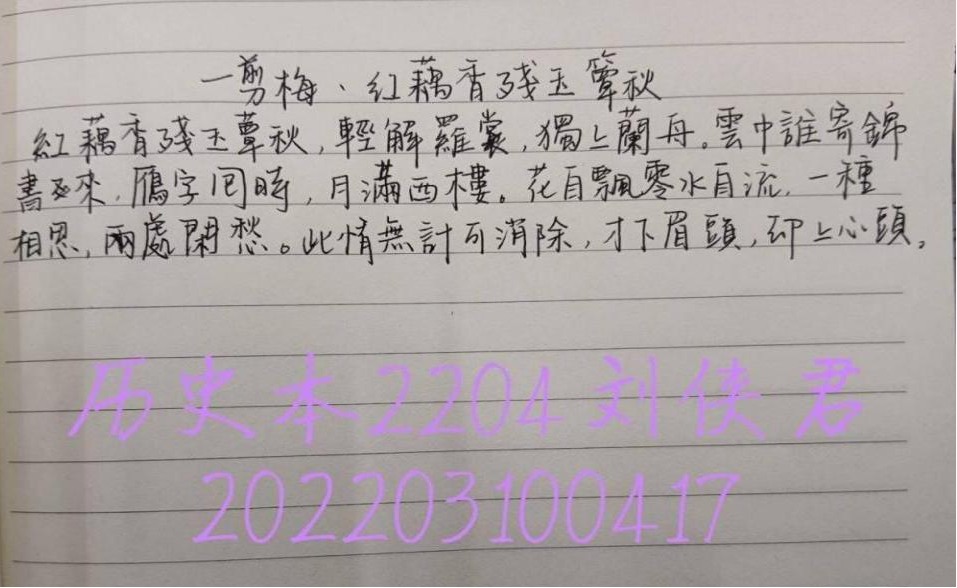 一剪梅、紅藕香殘玉簟秋
紅藕香殘玉蕈秋,輕解羅裳,獨上蘭舟。雲中誰寄錦
書來,鴈字囘時,月滿西樓。花自飄零水自流,一種
相思,兩處閑愁。此情無計可消除,才下眉頭,却上心頭。
历史本2204刘侠君
202203100417